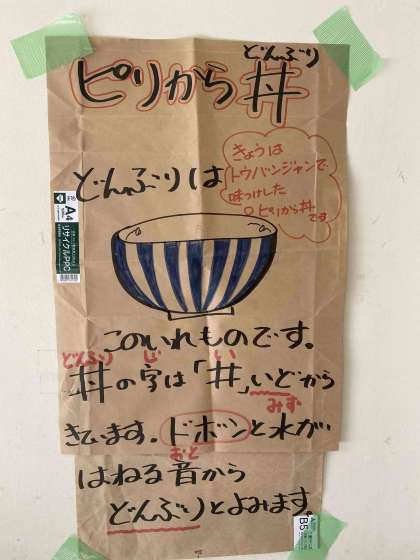 どんぶり
ピリから丼
きょうは
トウバンジャンで
味つけした
ピリから丼
です
どんぶりは
A4
リサイクルPPC
このいれものです。
どんぶり じ い
丼の字は「井」いどから
みず
きています。ドボンと水が
おと
はねる音から
どんぶりとよみます。
B5